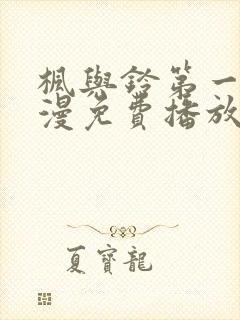 楓與鈴第一
漫免費播放
夏寶龍